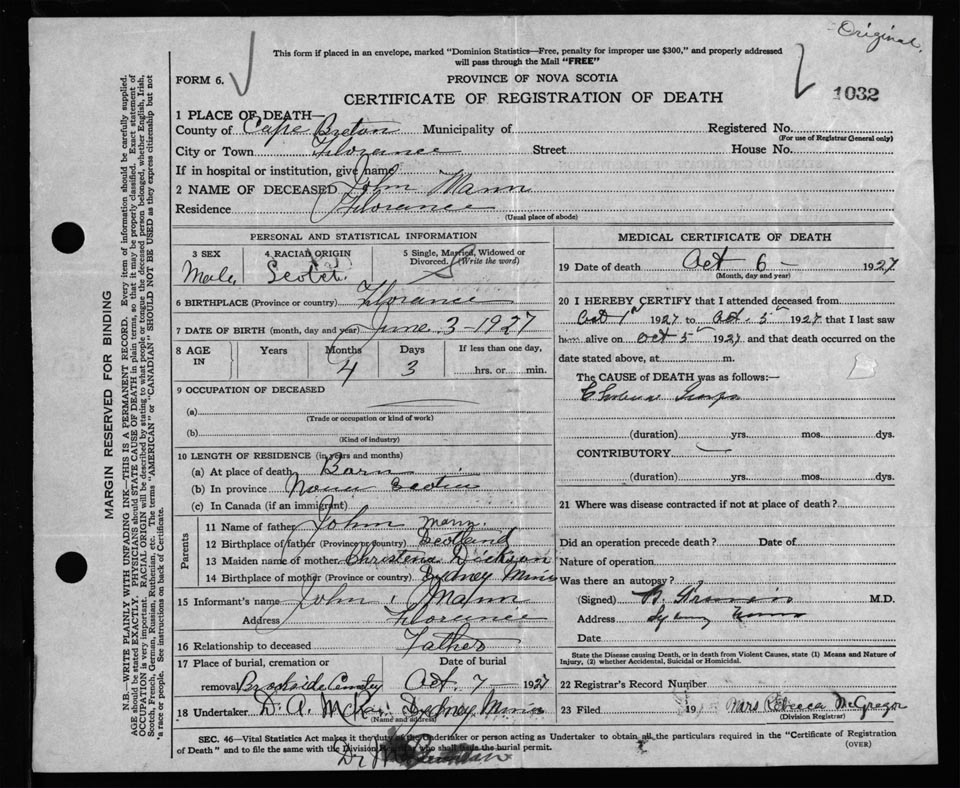 Original.
This form if placed in an envelope, marked "Dominion Statistics—Free, penalty for improper use $300," and properly addressed
will pass through the Mail "FREE"
FORM 6.
PROVINCE OF NOVA SCOTIA
CERTIFICATE OF REGISTRATION OF DEATH
1032
1 PLACE OF DEATH—
County of Cape Breton Municipality of Registered No.
(For use of Registrar General only)
City or Town Florance Street House No.
If in hospital or institution, give name
2 NAME OF DECEASED John Mann
Residence Florance
(Usual place of abode)
PERSONAL AND STATISTICAL INFORMATION
3 SEX
Male
4 RACIAL ORIGIN
Scotch
5 Single, Married, Widowed or Divorced. (Write the word)
S
6 BIRTHPLACE (Province or country) Florance
7 DATE OF BIRTH (month, day and year) June 3-1927
8 AGE IN Years Months Days If less than one day,
4 3 hrs. or min.
9 OCCUPATION OF DECEASED
(a)
(Trade or occupation or kind of work)
(b)
(Kind of industry)
10 LENGTH OF RESIDENCE (in years and months)
(a) At place of death Born
(b) In province Nova Scotia
(c) In Canada (if an immigrant)
Parents
11 Name of father John Mann.
12 Birthplace of father (Province or country) Scotland
13 Maiden name of mother Christena Dickson
14 Birthplace of mother (Province or country) Sydney Mines
15 Informant's name John Mann
Address Florance
16 Relationship to deceased Father
17 Place of burial, cremation or removal Brookside Cemetery
Date of burial Oct. 7 - 1927
18 Undertaker D. A. McRae Sydney Mines
(Name and address)
MEDICAL CERTIFICATE OF DEATH
19 Date of death Oct 6 - 1927
(Month, day and year)
20 I HEREBY CERTIFY that I attended deceased from
Oct 1st 1927 to Oct. 5th 1927 that I last saw
him alive on Oct 5th 1927 and that death occurred on the
date stated above, at m.
The CAUSE of DEATH was as follows:—
Cholera
(duration) yrs. mos. dys.
CONTRIBUTORY
(duration) yrs. mos. dys.
21 Where was disease contracted if not at place of death?
Did an operation precede death? Date of
Nature of operation
Was there an autopsy?
(Signed) M.D.
Address Sydney Mines
Date
State the Disease causing Death, or in death from Violent Causes, state (1) Means and Nature of
Injury, (2) whether Accidental, Suicidal or Homicidal.
22 Registrar's Record Number
23 Filed 19 Mrs Rebecca McGregor
(Division Registrar)
SEC. 46—Vital Statistics Act makes it the duty of the Undertaker or person acting as Undertaker to obtain all the particulars required in the "Certificate of Registration
of Death" and to file the same with the Division Registrar who shall issue the burial permit.
(OVER)
Dr
MARGIN RESERVED FOR BINDING
N.B.—WRITE PLAINLY WITH UNFADING INK—THIS IS A PERMANENT RECORD. Every item of information should be carefully supplied.
AGE should be stated EXACTLY. PHYSICIANS should STATE CAUSE OF DEATH in plain terms, so that it may be properly classified. Exact statement of
OCCUPATION is very important. RACIAL ORIGIN will be described by stating to what people or tongue the deceased person belonged, whether English, Irish,
Scotch, French, German, Russian, Ruthenian, etc. The terms "AMERICAN" or "CANADIAN" SHOULD NOT BE USED as they express citizenship but not
a race or people. See instructions on back of Certificate.